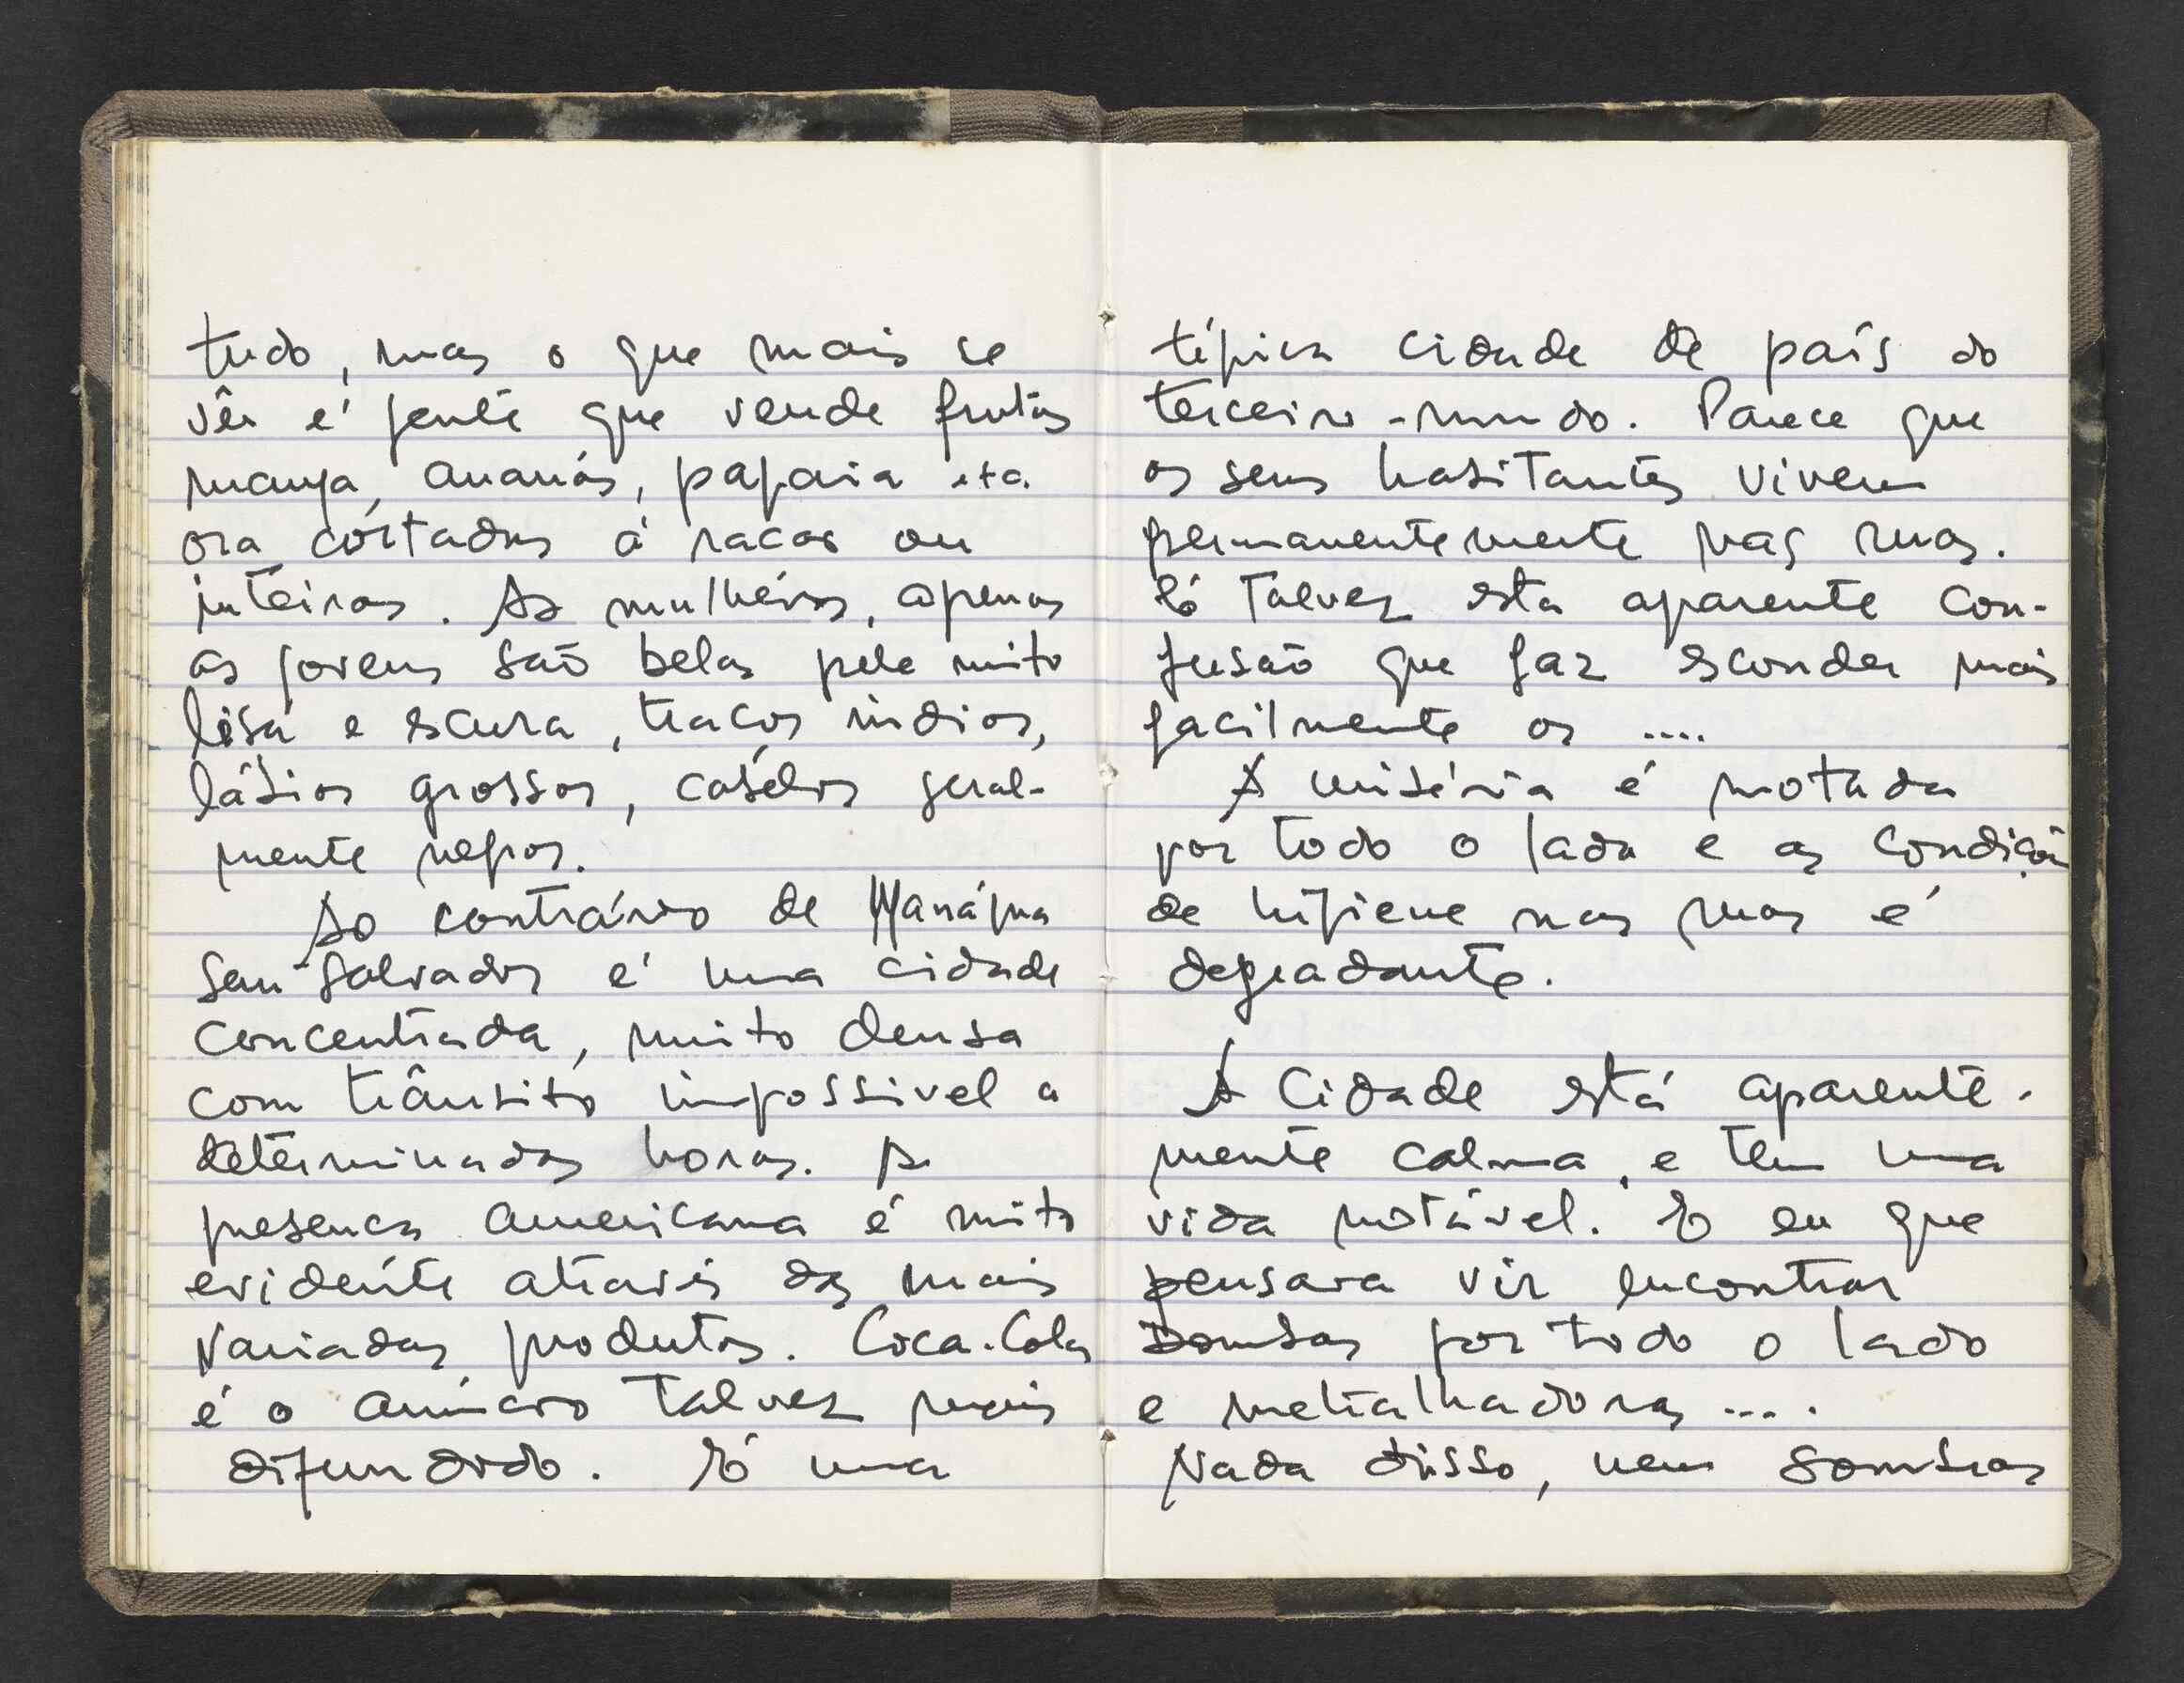 tudo, mas o que mais se
vêm é gente que vende frutas
manga, ananás, papaia etc.
ora córtadas á racas ou
inteiras. As mulhéres, apenas
as jovens são belas pele muito
lisa e escura, tracos indios,
lábios grossos, cabélos geral-
mente negros.
Ao contrário de Manágua
San Salvador é uma cidade
concentrada, muito densa
com trânsito impossivel a
determinadas horas. A
presenca americana é muito
evidente através dos mais
variados produtos. Coca-Cola
é o anúncio talvez mais
difundido. É uma
típica cidade de país do
terceiro-mundo. Parece que
os seus habitantes vivem
permanentemente nas ruas.
É talvez esta aparente con-
fusão que faz esconder mais
facilmente os ....
A miséria é notada
por todo o lado e as condição
de higiene nas ruas é
degradante.
A cidade está aparente-
mente calma, e tem uma
vida notável. E eu que
pensara vir encontrar
bombas por todo o lado
e metralhadoras ....
Nada disso, nem sombras